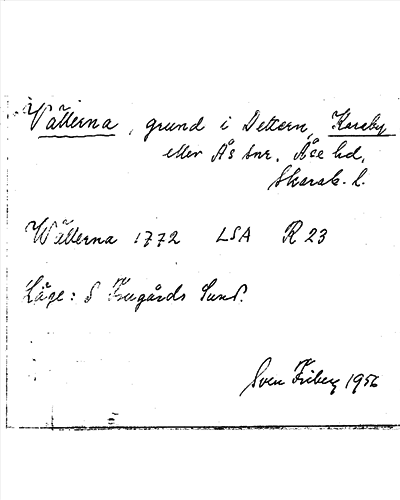 Vällerna, grund i Dettern, Karaby
eller Ås snr, Åse hd,
Skarab. l.
Wällerna 1772 LSA R 23
Läge: S Frugårds Sund.
Sven Friberg 1956